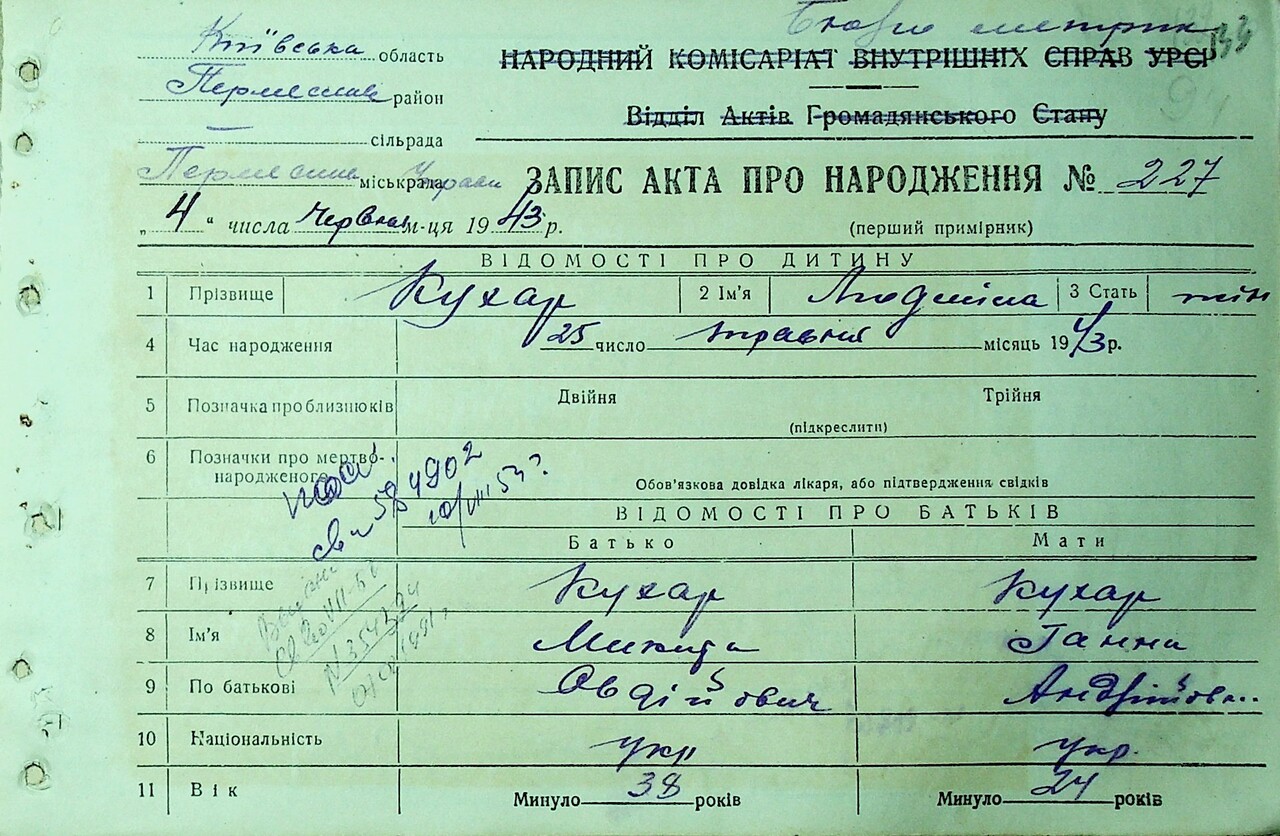 Бюро метрик
133
94
Київська область
НАРОДНИЙ КОМІСАРІАТ ВНУТРІШНІХ СПРАВ УРСР
район
Відділ Актів Громадянського Стану
— сільрада
міськрада Управи
ЗАПИС АКТА ПРО НАРОДЖЕННЯ № 227
„4“ числа Червня м-ця 1943 р.
(перший примірник)
ВІДОМОСТІ ПРО ДИТИНУ
1 Прізвище Кухар 2 Ім'я Людміла 3 Стать жін
4 Час народження 25 число травня місяць 1943 р.
5 Позначка про близнюків Двійня Трійня
(підкреслити)
6 Позначки про мертво-
народженого
Обов'язкова довідка лікаря, або підтвердження свідків
ВІДОМОСТІ ПРО БАТЬКІВ
Батько Мати
7 Прізвище Кухар Кухар
8 Ім'я Микита Ганна
9 По батькові Овдійович Андрійовн..
10 Національність укр укр.
11 Вік Минуло 38 років Минуло 24 років